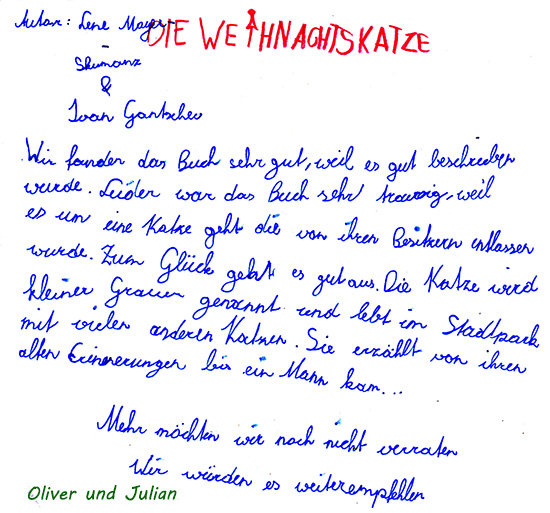 Autor: Lene Mayer-
DIE WEIHNACHTSKATZE
Skumanz
&
Ivan Gantschev
Wir fanden das Buch sehr gut, weil es gut beschrieben
wurde. Leider war das Buch sehr traurig, weil
es um eine Katze geht die von ihren Besitzern entlassen
wurde. Zum Glück geht es gut aus. Die Katze wird
kleiner Grauer genannt und lebt im Stadtpark
mit vielen anderen Katzen. Sie erzählt von ihren
alten Erinnerungen bis ein Mann kam...
Mehr möchten wir noch nicht verraten
Wir würden es weiterempfehlen
Oliver und Julian